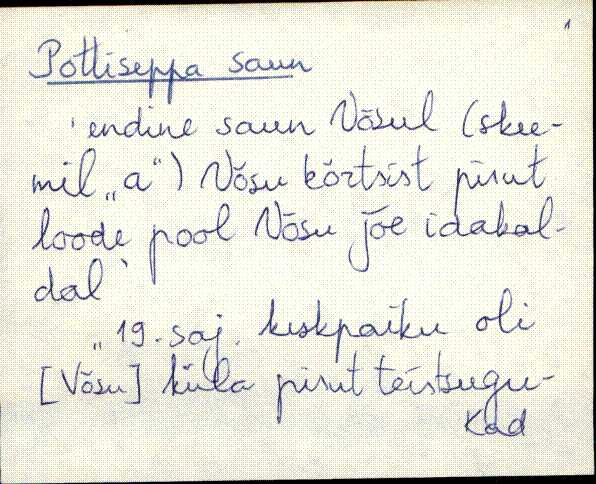 1
Pottisepa saun
'endine saun Võsul (skee-
mil „a“) Võsu kõrtsist pisut
loode pool Võsu jõe idakal-
dal'
„19. saj. keskpaiku oli
[Võsu] küla pisut teistsugu-
Kad